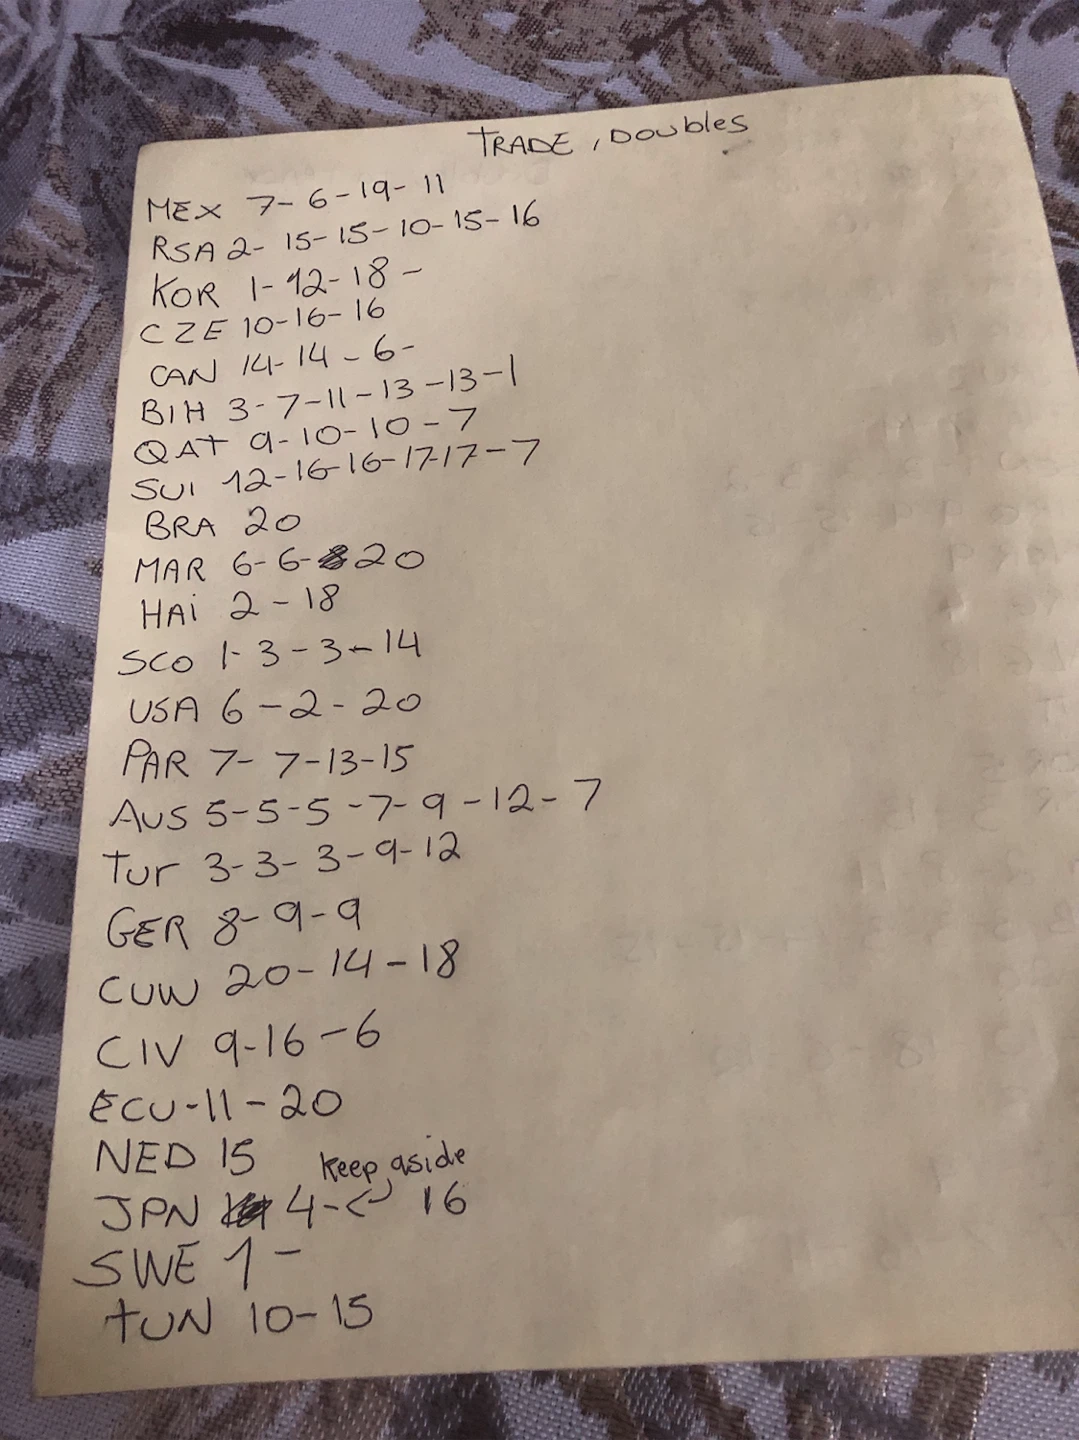 TRADE, Doubles
MEX 7-6-19-11
RSA 2-15-15-10-15-16
KOR 1-12-18-
CZE 10-16-16
CAN 14-14-6-
BIH 3-7-11-13-13-1
QAT 9-10-10-7
SUI 12-16-16-17-17-7
BRA 20
MAR 6-6-20
HAi 2-18
SCO 1-3-3-14
USA 6-2-20
PAR 7-7-13-15
AUS 5-5-5-7-9-12-7
Tur 3-3-3-9-12
GER 8-9-9
CUW 20-14-18
CIV 9-16-6
ECU-11-20
NED 15
keep aside
JPN 4- 16
SWE 1-
TUN 10-15